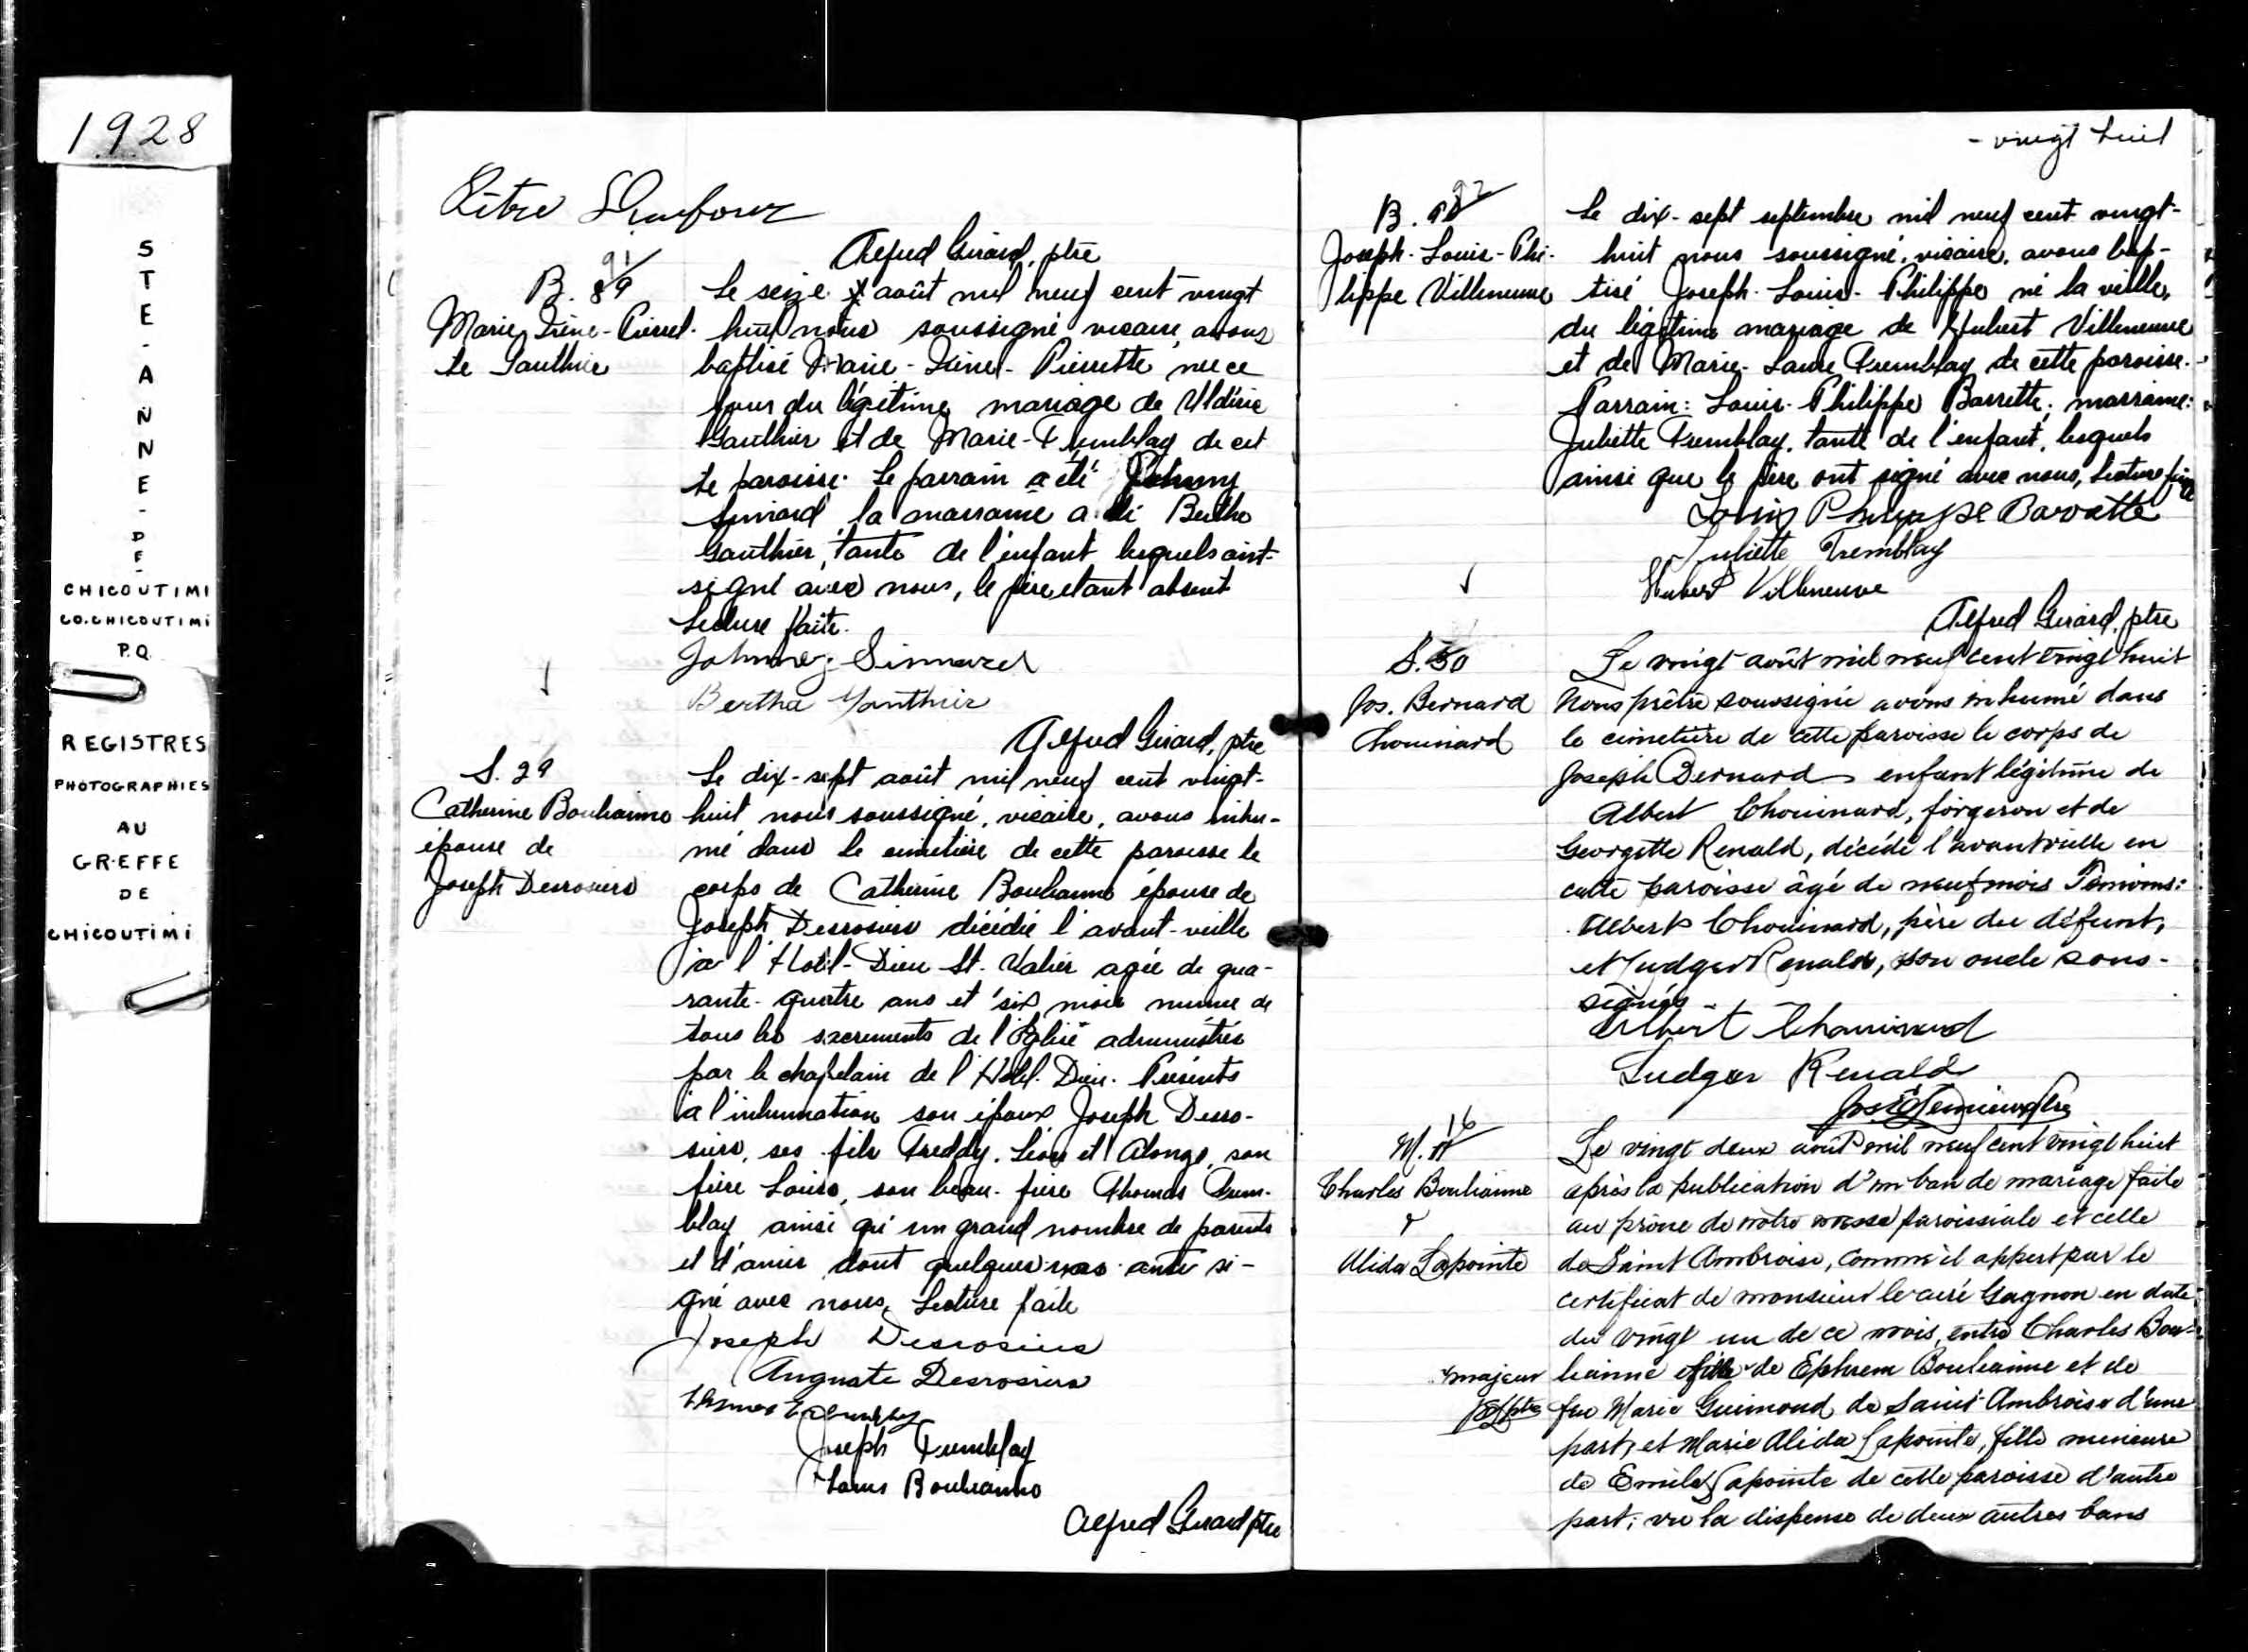 1928
STE-ANNE-DE-
CHICOUTIMI
CO. CHICOUTIMI
P.Q.
REGISTRES
PHOTOGRAPHIES
AU
GREFFE
DE
CHICOUTIMI
Alfred Girard, ptre
91
B. 89
Marie Irène-Pierret-
te Gauthier
Le seize août mil neuf cent vingt
huit nous soussigné vicaire, avons
baptisé Marie-Irène-Pierrette née ce
jour du légitime mariage de Uldéric
Gauthier et de Marie-Tremblay de cet
te paroisse. Le parrain a été Johnny
Simard la marraine a été Berthe
Gauthier, tante de l'enfant lesquels ont
signé avec nous, le père étant absent
Lecture faite.
Johnny Simard
Bertha Gauthier
Alfred Girard, ptre
S. 29
Catherine Boulianne
épouse de
Joseph Desrosiers
Le dix-sept août mil neuf cent vingt-
huit nous soussigné, vicaire, avons inhu-
mé dans le cimetière de cette paroisse le
corps de Catherine Boulianne épouse de
Joseph Desrosiers décédée l'avant-veille
à l'Hôtel-Dieu St. Valier agée de qua-
rante-quatre ans et six mois munie de
tous les sacrements de l'Eglise administrés
par le chapelain de l'Hôtel-Dieu. Présents
à l'inhumation son époux Joseph Desro-
siers, ses fils Freddy, Léon et Alonzo, son
frère Louis, son beau-frère Thomas Trem-
blay ainsi qu'un grand nombre de parents
et d'amis dont quelques-uns ont si-
gné avec nous, Lecture faite
Joseph Desrosiers
Auguste Desrosiers
Thomas Tremblay
Joseph Tremblay
Louis Boulianne
Alfred Girard ptre
- vingt huit
92
B.
Joseph-Louis-Phi-
lippe Villeneuve
Le dix-sept septembre mil neuf cent vingt-
huit nous soussigné, vicaire, avons bap-
tisé Joseph-Louis-Philippe né la veille,
du légitime mariage de Hubert Villeneuve
et de Marie-Laure Tremblay de cette paroisse.
Parrain: Louis-Philippe Barrette; marraine:
Juliette Tremblay, tante de l'enfant, lesquels
ainsi que le père ont signé avec nous, Lecture faite
Louis Philippe Barrette
Juliette Tremblay
Hubert Villeneuve
Alfred Girard, ptre
S. 30
Jos. Bernard
Chouinard
Le vingt août mil neuf cent vingt huit
Nous prêtre soussigné avons inhumé dans
le cimetière de cette paroisse le corps de
Joseph Bernard enfant légitime de
Albert Chouinard, forgeron et de
Georgette Renald, décédé l'avant veille en
cette paroisse âgé de neuf mois Témoins:
Albert Chouinard, père du défunt,
et Ludger Renald, son oncle sous-
signés -
Albert Chouinard
Ludger Renald
16
M.
Charles Boulianne
&
Alida Lapointe
Le vingt deux août mil neuf cent vingt huit
après la publication d'un ban de mariage faite
au prône de notre messe paroissiale et celle
de Saint Ambroise, comme il appert par le
certificat de monsieur le curé Gagnon en date
du vingt un de ce mois, entre Charles Bou-
lianne fils de Ephrem Boulianne et de
majeur
feu Marie Guimond de Saint Ambroise d'une
part, et Marie Alida Lapointe, fille mineure
de Emile Lapointe de cette paroisse d'autre
part; vu la dispense de deux autres bans